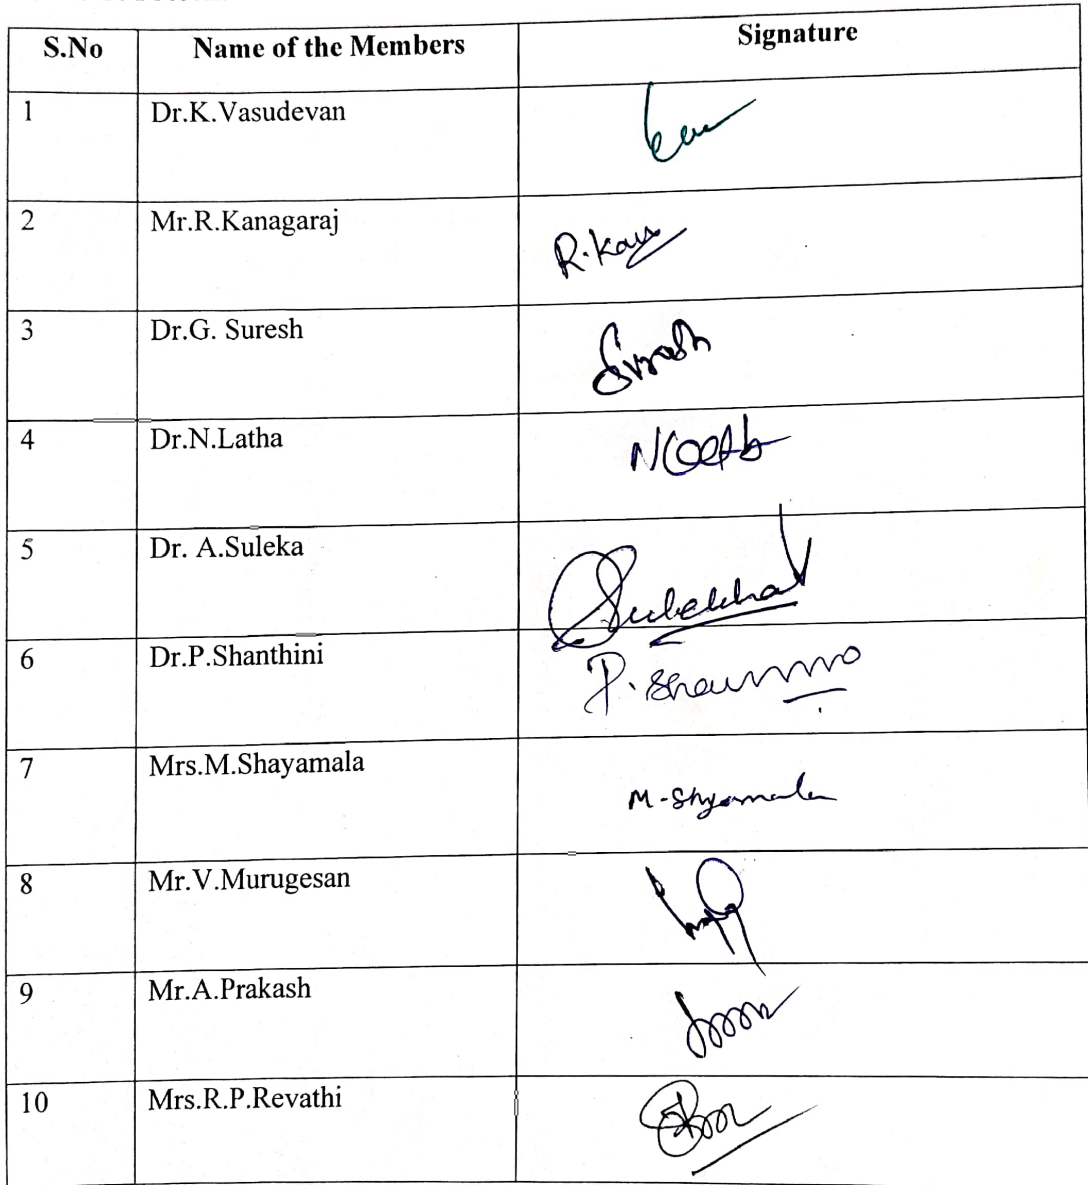 S.No Name of the Members Signature
1 Dr.K.Vasudevan
2 Mr.R.Kanagaraj R.Kan
3 Dr.G. Suresh Suresh
4 Dr.N.Latha
5 Dr. A.Suleka
6 Dr.P.Shanthini
7 Mrs.M.Shayamala M-Shyamala
8 Mr.V.Murugesan
9 Mr.A.Prakash
10 Mrs.R.P.Revathi